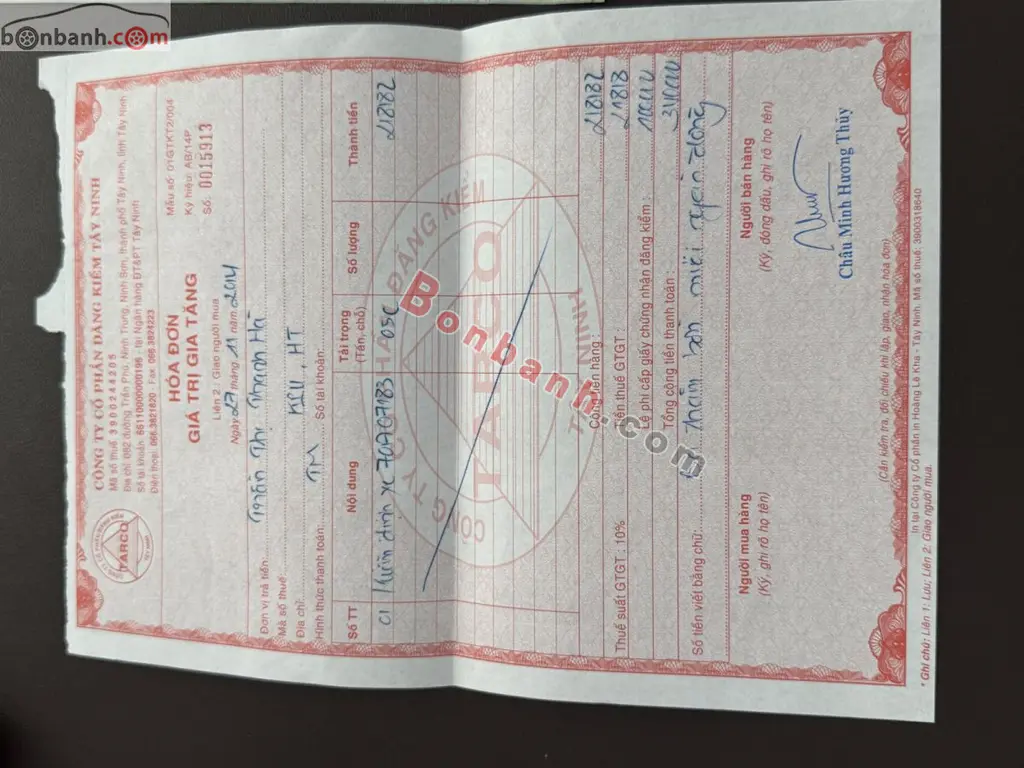 bonbanh.com
CÔNG TY CỔ PHẦN ĐĂNG KIỂM TÂY NINH
Mã số thuế: 3900244205
Địa chỉ: 082 đường Trần Phú, Ninh Trung, Ninh Sơn, thành phố Tây Ninh, tỉnh Tây Ninh
Số tài khoản: 65110000000196 - tại Ngân hàng ĐT&PT Tây Ninh
Điện thoại: 066.3821820 Fax: 066.3824223
TARCO
TÂY NINH
HÓA ĐƠN
GIÁ TRỊ GIA TĂNG
Liên 2: Giao người mua
Ngày 27 tháng 11 năm 2014
Mẫu số: 01GTKT2/004
Ký hiệu: AB/14P
Số: 0015913
Đơn vị trả tiền: Trần Thị Thanh Hà
Mã số thuế:
Địa chỉ: HT
Hình thức thanh toán: TM Số tài khoản:
Số TT Nội dung Tải trọng (Tấn, chỗ) Số lượng Thành tiền
01 Kiểm định xe 70A07083 05C 218182
CÔNG TY CỔ PHẦN ĐĂNG KIỂM
TARCO
TÂY NINH
Bonbanh.com
Cộng tiền hàng: 218182
Thuế suất GTGT: 10% Tiền thuế GTGT: 21818
Lệ phí cấp giấy chứng nhận đăng kiểm: 100000
Tổng cộng tiền thanh toán: 340000
Số tiền viết bằng chữ: Ba trăm bốn mươi ngàn đồng
Người mua hàng
(Ký, ghi rõ họ tên)
Người bán hàng
(Ký, đóng dấu, ghi rõ họ tên)
Châu Minh Hương Thủy
(Cần kiểm tra, đối chiếu khi lập, giao, nhận hóa đơn)
In tại Công ty Cổ phần In Hoàng Lê Kha - Tây Ninh. Mã số thuế: 3900318640
* Ghi chú: Liên 1: Lưu; Liên 2: Giao người mua.